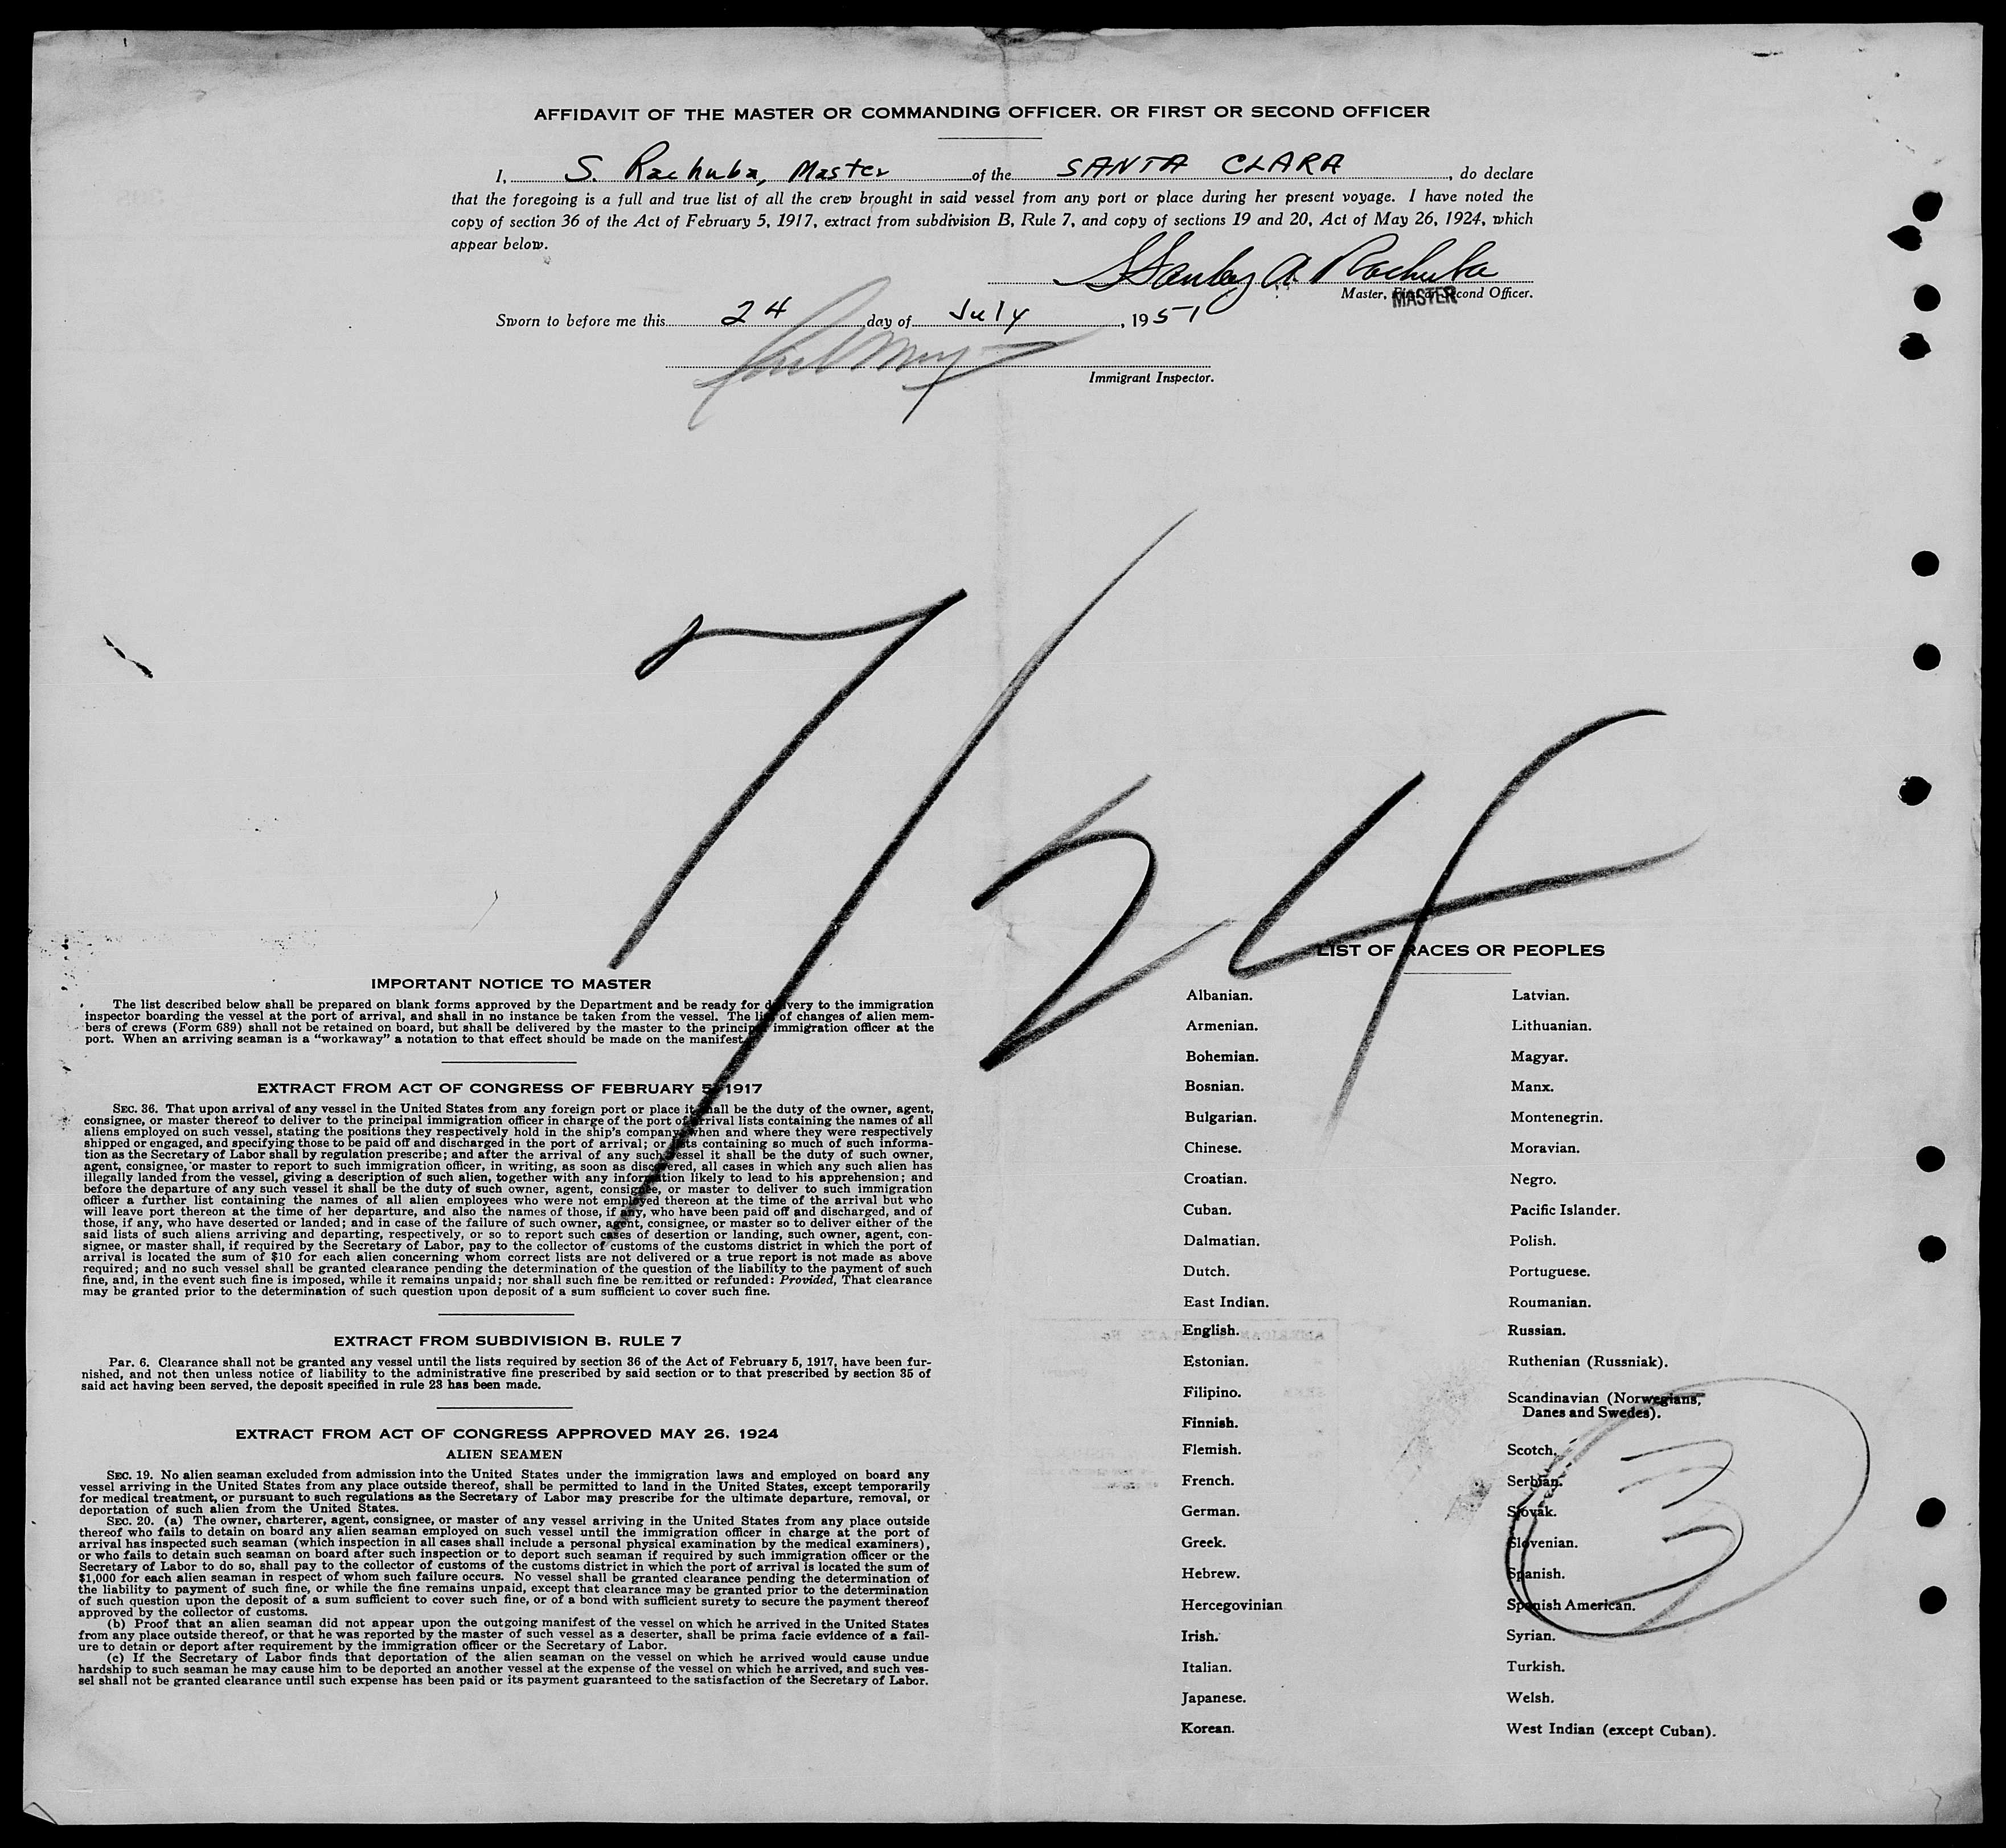 AFFIDAVIT OF THE MASTER OR COMMANDING OFFICER, OR FIRST OR SECOND OFFICER
I, S. Rachuba, Master of the SANTA CLARA, do declare
that the foregoing is a full and true list of all the crew brought in said vessel from any port or place during her present voyage. I have noted the
copy of section 36 of the Act of February 5, 1917, extract from subdivision B, Rule 7, and copy of sections 19 and 20, Act of May 26, 1924, which
appear below.
Stanley A. Rachuba
Master, First or Second Officer.
MASTER
Sworn to before me this 24 day of July, 1951
Immigrant Inspector.
7/24
IMPORTANT NOTICE TO MASTER
The list described below shall be prepared on blank forms approved by the Department and be ready for delivery to the immigration
inspector boarding the vessel at the port of arrival, and shall in no instance be taken from the vessel. The list of changes of alien mem-
bers of crews (Form 689) shall not be retained on board, but shall be delivered by the master to the principal immigration officer at the
port. When an arriving seaman is a "workaway" a notation to that effect should be made on the manifest.
EXTRACT FROM ACT OF CONGRESS OF FEBRUARY 5, 1917
SEC. 36. That upon arrival of any vessel in the United States from any foreign port or place it shall be the duty of the owner, agent,
consignee, or master thereof to deliver to the principal immigration officer in charge of the port of arrival lists containing the names of all
aliens employed on such vessel, stating the positions they respectively hold in the ship's company, when and where they were respectively
shipped or engaged, and specifying those to be paid off and discharged in the port of arrival; or lists containing so much of such informa-
tion as the Secretary of Labor shall by regulation prescribe; and after the arrival of any such vessel it shall be the duty of such owner,
agent, consignee, or master to report to such immigration officer, in writing, as soon as discovered, all cases in which any such alien has
illegally landed from the vessel, giving a description of such alien, together with any information likely to lead to his apprehension; and
before the departure of any such vessel it shall be the duty of such owner, agent, consignee, or master to deliver to such immigration
officer a further list containing the names of all alien employees who were not employed thereon at the time of the arrival but who
will leave port thereon at the time of her departure, and also the names of those, if any, who have been paid off and discharged, and of
those, if any, who have deserted or landed; and in case of the failure of such owner, agent, consignee, or master so to deliver either of the
said lists of such aliens arriving and departing, respectively, or so to report such cases of desertion or landing, such owner, agent, con-
signee, or master shall, if required by the Secretary of Labor, pay to the collector of customs of the customs district in which the port of
arrival is located the sum of $10 for each alien concerning whom correct lists are not delivered or a true report is not made as above
required; and no such vessel shall be granted clearance pending the determination of the question of the liability to the payment of such
fine, and, in the event such fine is imposed, while it remains unpaid; nor shall such fine be remitted or refunded: Provided, That clearance
may be granted prior to the determination of such question upon deposit of a sum sufficient to cover such fine.
EXTRACT FROM SUBDIVISION B, RULE 7
Par. 6. Clearance shall not be granted any vessel until the lists required by section 36 of the Act of February 5, 1917, have been fur-
nished, and not then unless notice of liability to the administrative fine prescribed by said section or to that prescribed by section 35 of
said act having been served, the deposit specified in rule 23 has been made.
EXTRACT FROM ACT OF CONGRESS APPROVED MAY 26, 1924
ALIEN SEAMEN
SEC. 19. No alien seaman excluded from admission into the United States under the immigration laws and employed on board any
vessel arriving in the United States from any place outside thereof, shall be permitted to land in the United States, except temporarily
for medical treatment, or pursuant to such regulations as the Secretary of Labor may prescribe for the ultimate departure, removal, or
deportation of such alien from the United States.
SEC. 20. (a) The owner, charterer, agent, consignee, or master of any vessel arriving in the United States from any place outside
thereof who fails to detain on board any alien seaman employed on such vessel until the immigration officer in charge at the port of
arrival has inspected such seaman (which inspection in all cases shall include a personal physical examination by the medical examiners),
or who fails to detain such seaman on board after such inspection or to deport such seaman if required by such immigration officer or the
Secretary of Labor to do so, shall pay to the collector of customs of the customs district in which the port of arrival is located the sum of
$1,000 for each alien seaman in respect of whom such failure occurs. No vessel shall be granted clearance pending the determination of
the liability to payment of such fine, or while the fine remains unpaid, except that clearance may be granted prior to the determination
of such question upon the deposit of a sum sufficient to cover such fine, or of a bond with sufficient surety to secure the payment thereof
approved by the collector of customs.
(b) Proof that an alien seaman did not appear upon the outgoing manifest of the vessel on which he arrived in the United States
from any place outside thereof, or that he was reported by the master of such vessel as a deserter, shall be prima facie evidence of a fail-
ure to detain or deport after requirement by the immigration officer or the Secretary of Labor.
(c) If the Secretary of Labor finds that deportation of the alien seaman on the vessel on which he arrived would cause undue
hardship to such seaman he may cause him to be deported an another vessel at the expense of the vessel on which he arrived, and such ves-
sel shall not be granted clearance until such expense has been paid or its payment guaranteed to the satisfaction of the Secretary of Labor.
LIST OF RACES OR PEOPLES
Albanian.
Armenian.
Bohemian.
Bosnian.
Bulgarian.
Chinese.
Croatian.
Cuban.
Dalmatian.
Dutch.
East Indian.
English.
Estonian.
Filipino.
Finnish.
Flemish.
French.
German.
Greek.
Hebrew.
Hercegovinian
Irish.
Italian.
Japanese.
Korean.
Latvian.
Lithuanian.
Magyar.
Manx.
Montenegrin.
Moravian.
Negro.
Pacific Islander.
Polish.
Portuguese.
Roumanian.
Russian.
Ruthenian (Russniak).
Scandinavian (Norwegians,
Danes and Swedes).
Scotch.
Serbian.
Slovak.
Slovenian.
Spanish.
Spanish American.
Syrian.
Turkish.
Welsh.
West Indian (except Cuban).
3